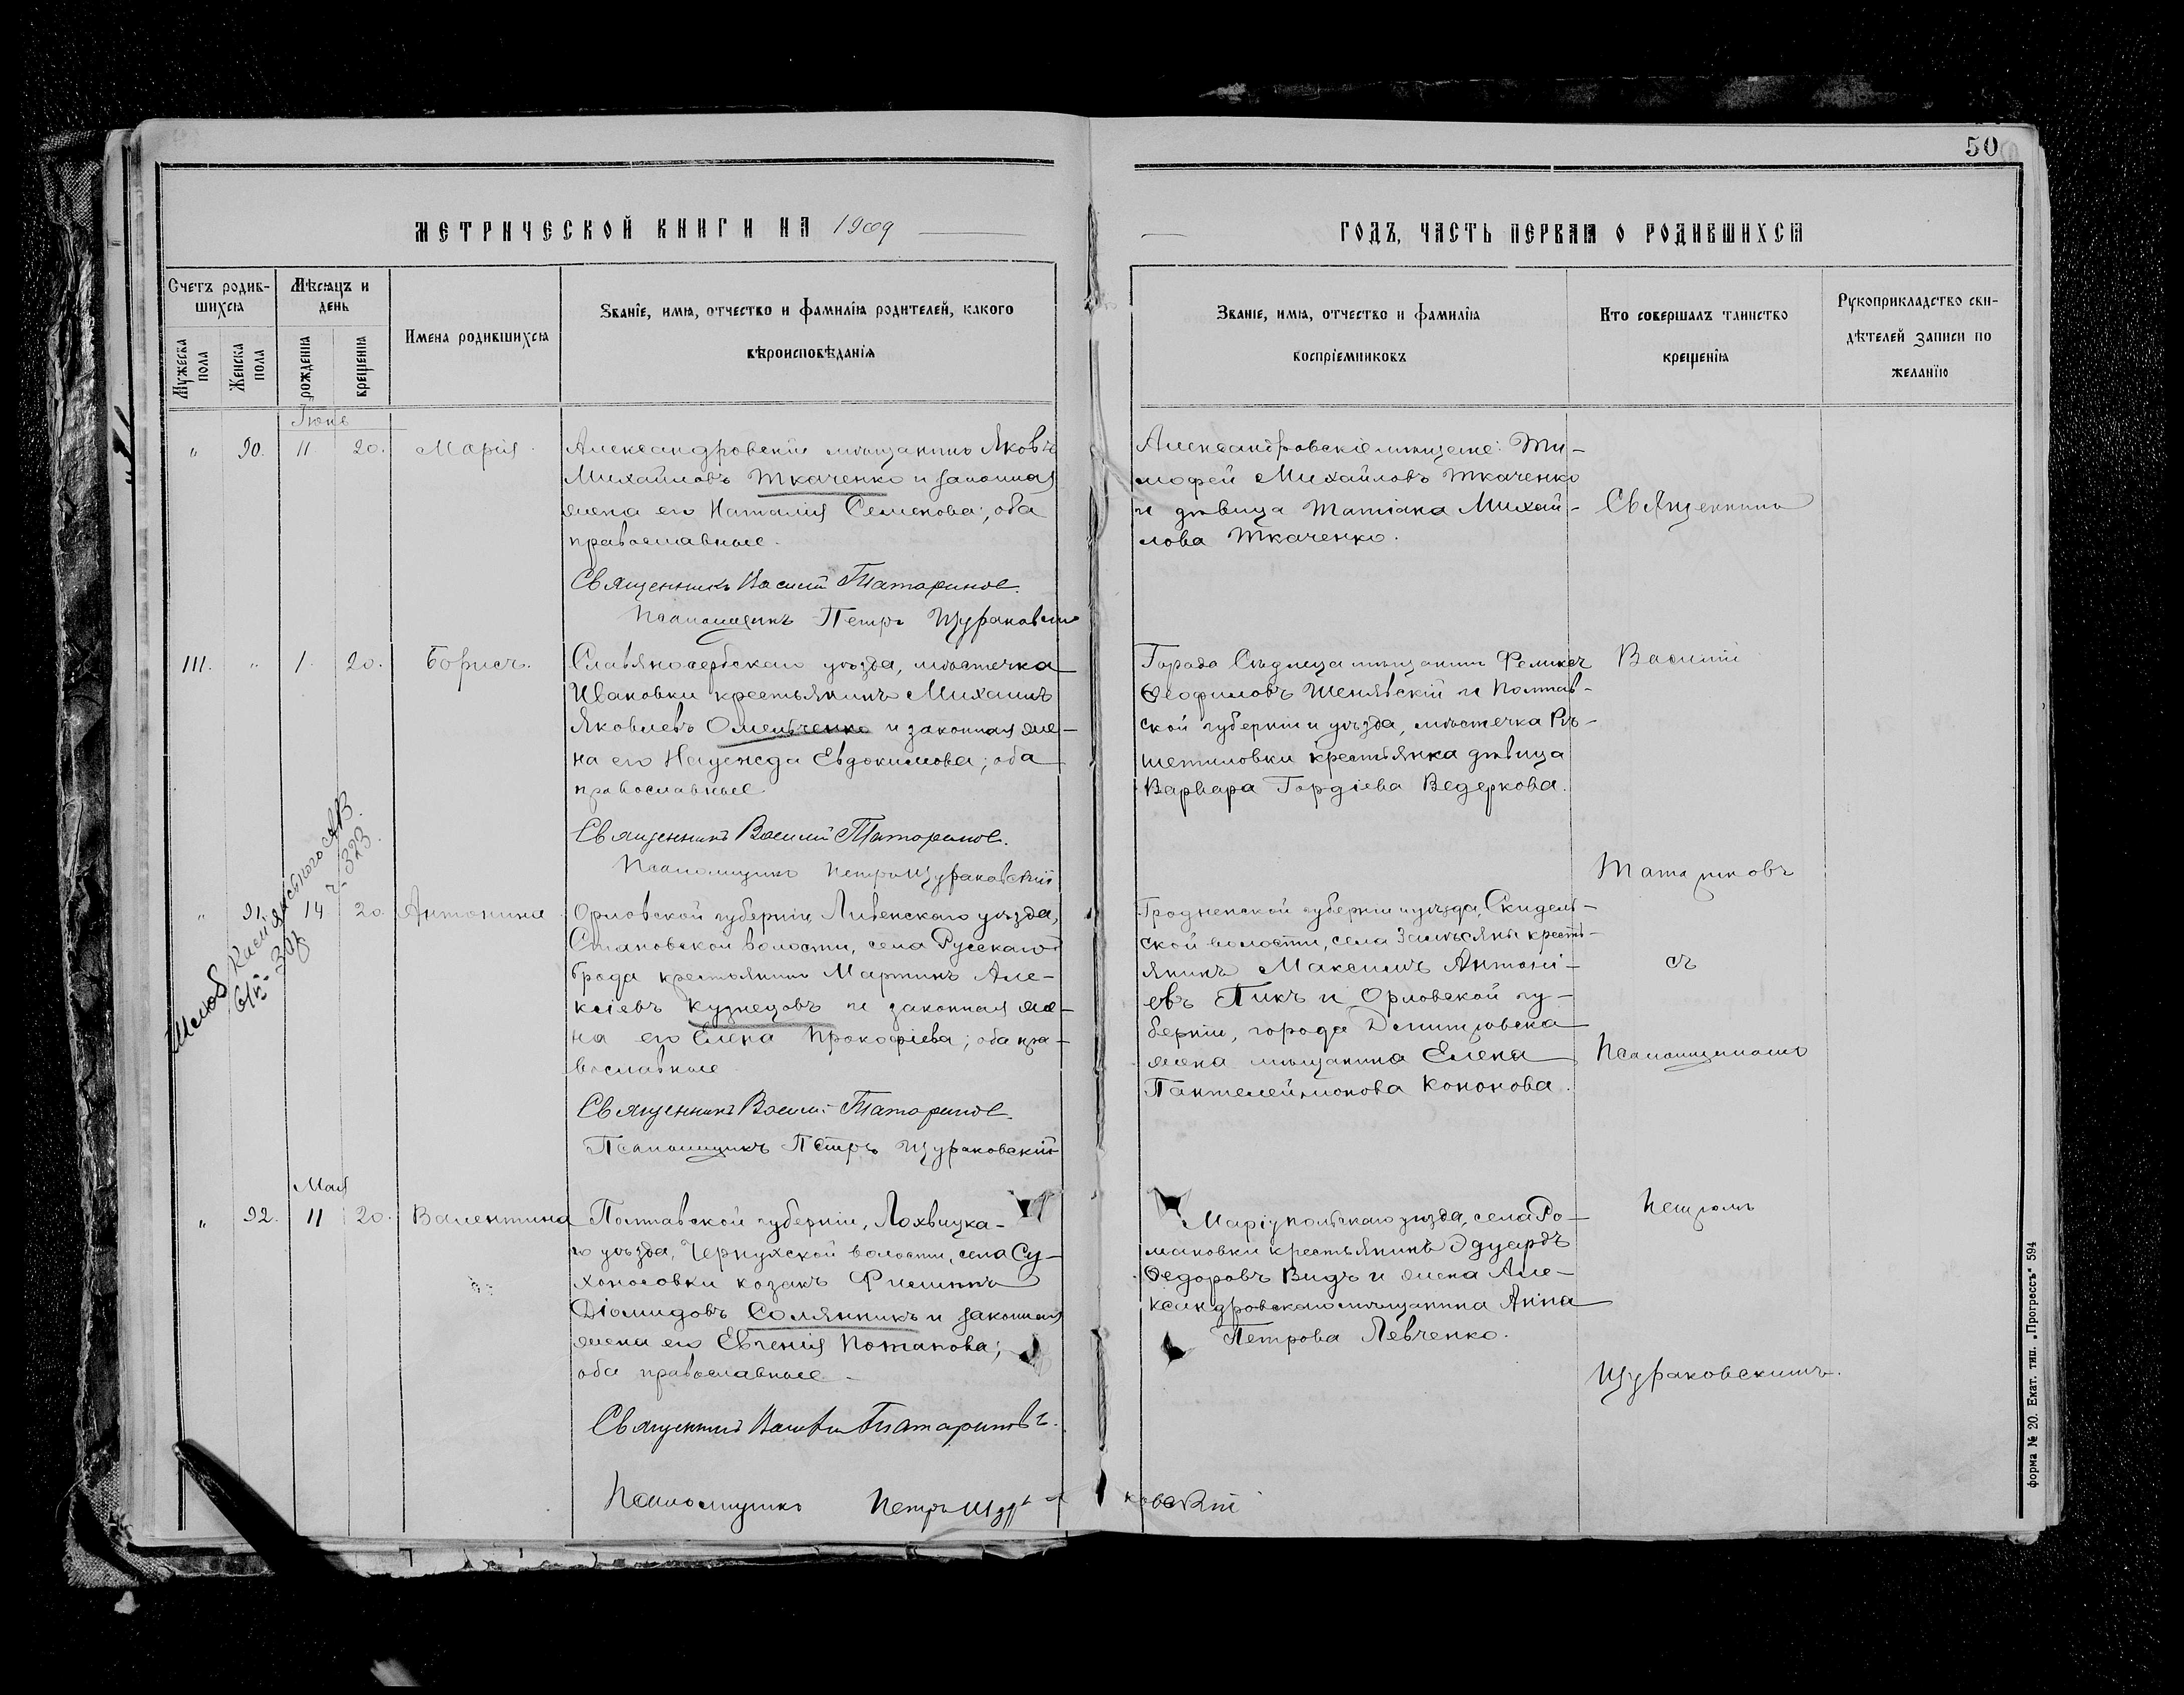 50
МЕТРИЧЕСКОЙ КНИГИ НА 1909
ГОДЪ, ЧАСТЬ ПЕРВАЯ О РОДИВШИХСЯ
Счетъ родив-
шихся
Мужеска пола
Женска пола
Мѣсяцъ и
день
рожденія
крещенія
Имена родившихся
Званіе, имя, отчество и фамилія родителей, какого
вѣроисповѣданія
Званіе, имя, отчество и фамилія
воспріемниковъ
Кто совершалъ таинство
крещенія
Рукоприкладство сви-
дѣтелей записи по
желанію
Іюнь
" 90. 11 20. Марія.
Александровскій мѣщанинъ Яковъ
Михайловъ Ткаченко и законная
жена его Наталія Семенова; оба
православные.
Священникъ Василій Татариновъ.
Псаломщикъ Петръ Щураковскій
Александровскіе мѣщане: Ти-
мофей Михайловъ Ткаченко
и дѣвица Татіана Михай-
лова Ткаченко.
Священникъ
111. " 1. 20. Борисъ.
Славяносербскаго уѣзда, мѣстечка
Ивановки крестьянинъ Михаилъ
Яковлевъ Омельченко и законная же-
на его Надежда Евдокимова; оба
православные
Священникъ Василій Татариновъ.
Псаломщикъ Петръ Щураковскій
Города Сѣдлеца мѣщанинъ Феликсъ
Ѳеофиловъ и Полтав-
ской губерніи и уѣзда, мѣстечка Рѣ-
шетиловки крестьянка дѣвица
Варвара Гордіева Ведеркова.
Василій
Татариновъ
" 91. 14 20. Антонина
Орловской губерніи, Ливенскаго уѣзда,
волости, села Русскаго
брода крестьянинъ Мартинъ Але-
ксіевъ Кузнецовъ и законная же-
на его Елена Прокофіева; оба пра-
вославные
Священникъ Василій Татариновъ.
Псаломщикъ Петръ Щураковскій
Гродненской губерніи и уѣзда, Скидель-
ской волости, села кресть-
янинъ Максимъ Антоні-
евъ Пикъ и Орловской гу-
берніи, города Дмитровска
жена мѣщанина Елена
Пантелеймонова Кононова.
съ
Псаломщикомъ
323.
Мая
" 92. 11 20. Валентина
Полтавской губерніи, Лохвицка-
го уѣзда, Чернухской волости, села Су-
хоносовки козакъ Филиппъ
Діомидовъ Солянникъ и законная
жена его Евгенія Потапова;
оба православные.
Священникъ Василій Татариновъ.
Псаломщикъ Петръ Щураковскій
Маріупольскаго уѣзда, села Ро-
мановки крестьянинъ Эдуардъ
Ѳедоровъ Видъ и жена Але-
ксандровскаго мѣщанина Анна
Петрова Левченко.
Петромъ
Щураковскимъ.
форма № 20. Екат. тип. „Прогрессъ" 594